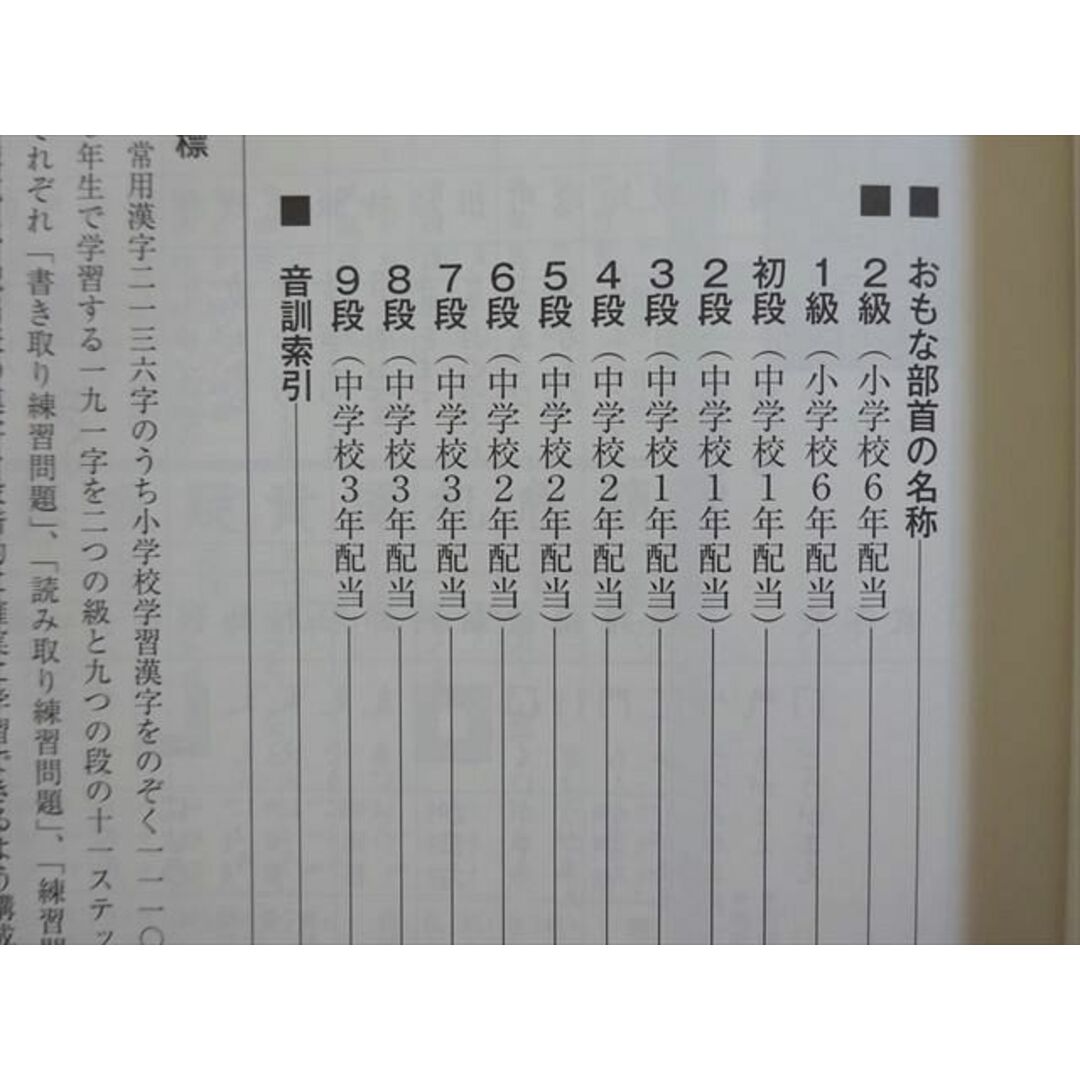 ■おもな部首の名称
■2級（小学校6年配当）
1級（小学校6年配当）
初段（中学校1年配当）
2段（中学校1年配当）
3段（中学校1年配当）
4段（中学校2年配当）
5段（中学校2年配当）
6段（中学校2年配当）
7段（中学校3年配当）
8段（中学校3年配当）
9段（中学校3年配当）
■音訓索引
標
常用漢字二一三六字のうち小学校学習漢字をのぞく一一一〇
年生で学習する一九一字を二つの級と九つの段の十一ステッ
それぞれ「書き取り練習問題」、「読み取り練習問題」、「練習問
確実に学習できるよう構成